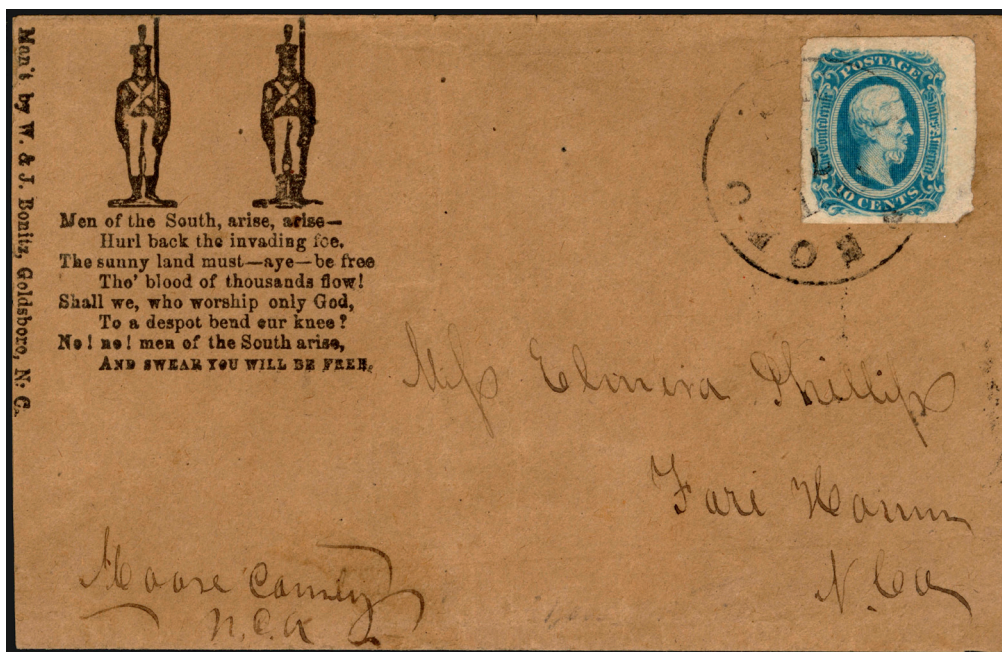 Man't by W. & J. Bonitz, Goldsboro, N. C.
Men of the South, arise, arise—
Hurl back the invading foe.
The sunny land must—aye—be free
Tho' blood of thousands flow!
Shall we, who worship only God,
To a despot bend our knee?
No! no! men of the South arise,
AND SWEAR YOU WILL BE FREE.
POSTAGE
The Confederate States America
10 CENTS
Miss Elmira Phillips
Fare Haven
N. Ca
Moore County
N. C. a